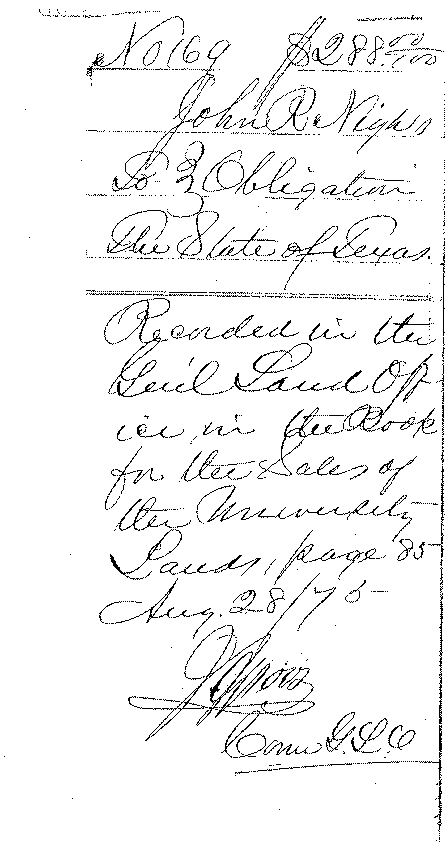 No 169 $288.00/100
John R.
To } Obligation
The State of Texas.
Recorded in the
Gen'l Land Off
ice in the Book
for the Sales of
the University
Lands, page 85
Aug. 28/75
Com G. L. O